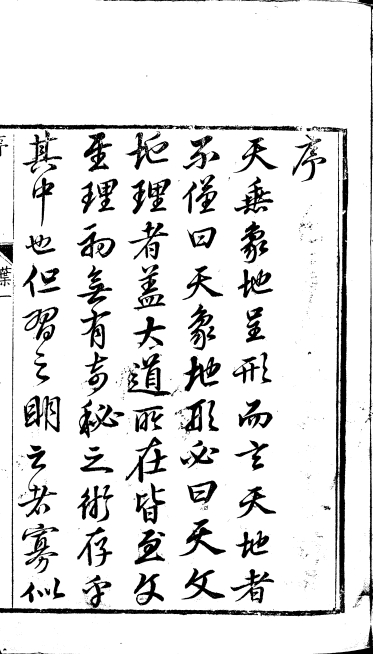 序
天垂象地呈形而言天地者
不僅曰天象地形必曰天文
地理者蓋大道所在皆至文
至理初無有奇秘之術存乎
其中也但習之明之者寡似
葉一